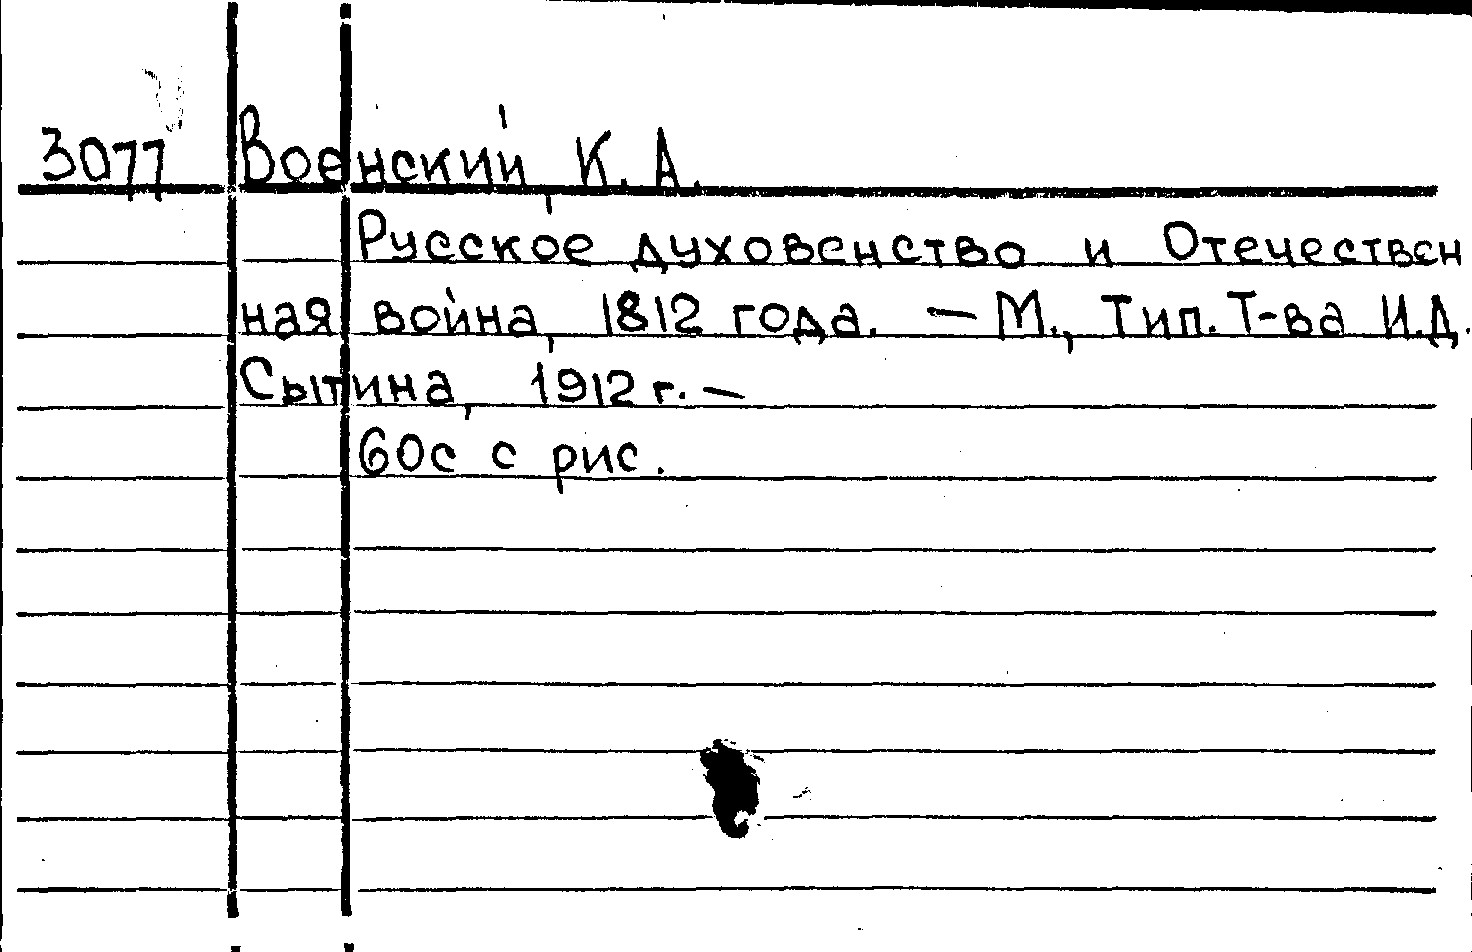 3077 Военский, К. А.
Русское духовенство и Отечествен
ная война, 1812 года. — М., Тип. Т-ва И.Д.
Сытина, 1912 г. —
60с с рис.